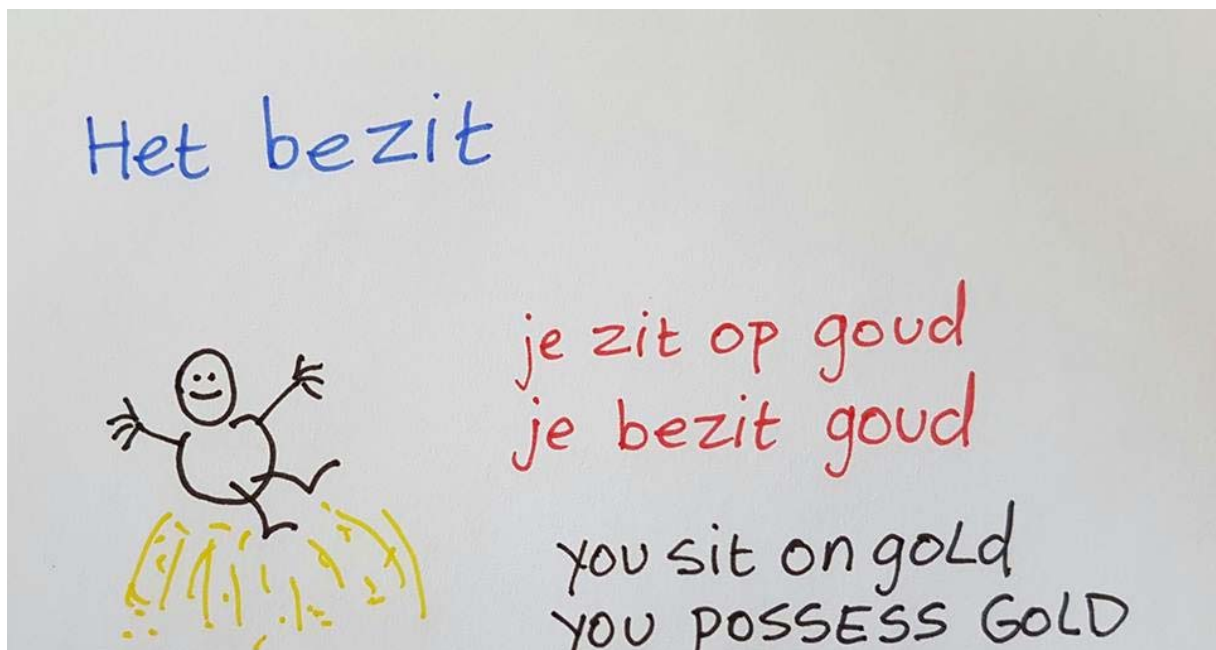 Het bezit
je zit op goud
je bezit goud
you sit on gold
you POSSESS GOLD